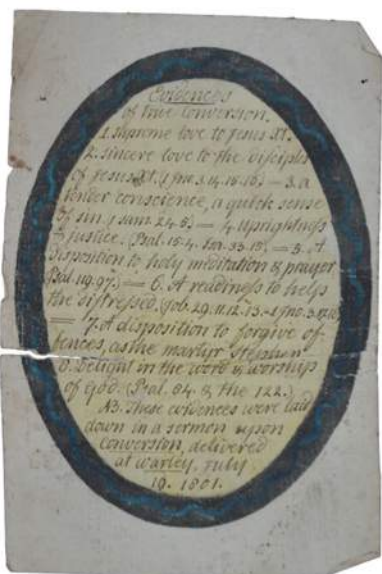 Evidences
of true Conversion.
1. Supreme love to Jesus Xt.
2. Sincere love to the disciples
of Jesus Xt. (1 Jno. 3.14.15.16) — 3. a
tender conscience, a quick sense
of sin. 1 Sam. 24.5) — 4. Uprightness
& justice. (Psal. 15.4. Isa. 33.15) — 5. A
disposition to holy meditation & prayer
Psal. 119.97) — 6. A readiness to help
the distressed. (Job. 29.11.12.13. 1 Jno. 3.17.18)
— 7. A disposition to forgive of-
fences, as the martyr Stephen
8. Delight in the word & worship
of God. (Psal. 84. & the 122.)
NB. These evidences were laid
down in a sermon upon
Conversion, delivered
at Warley, July
19. 1801.